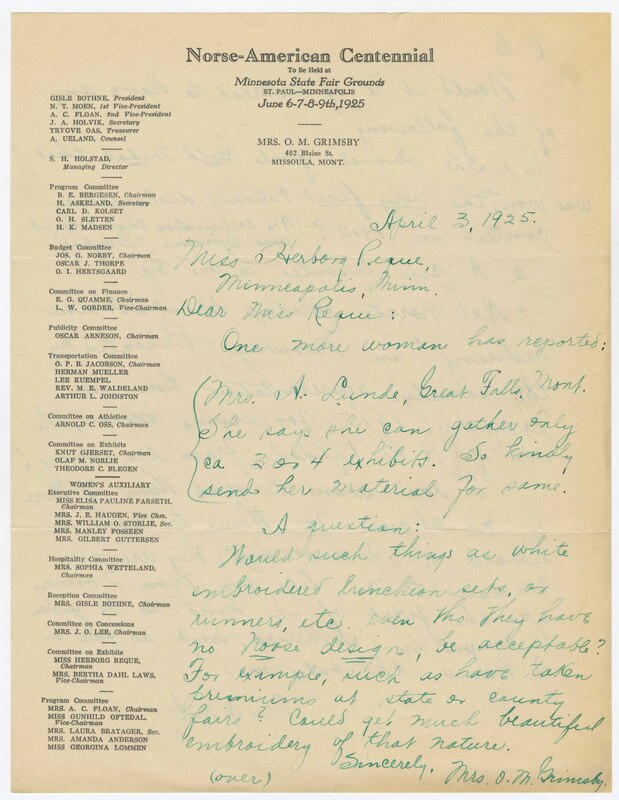 Norse-American Centennial
To Be Held at
Minnesota State Fair Grounds
ST. PAUL—MINNEAPOLIS
June 6-7-8-9th, 1925
MRS. O. M. GRIMSBY
402 Blaine St.
MISSOULA, MONT.
GISLE BOTHNE, President
N. T. MOEN, 1st Vice-President
A. C. FLOAN, 2nd Vice-President
J. A. HOLVIK, Secretary
TRYGVE OAS, Treasurer
A. UELAND, Counsel
S. H. HOLSTAD,
Managing Director
Program Committee
B. E. BERGESEN, Chairman
H. ASKELAND, Secretary
CARL D. KOLSET
O. H. SLETTEN
H. K. MADSEN
Budget Committee
JOS. G. NORBY, Chairman
OSCAR J. THORPE
O. I. HERTSGAARD
Committee on Finance
E. G. QUAMME, Chairman
L. W. GORDER, Vice-Chairman
Publicity Committee
OSCAR ARNESON, Chairman
Transportation Committee
O. P. B. JACOBSON, Chairman
HERMAN MUELLER
LEE KUEMPEL
REV. M. E. WALDELAND
ARTHUR L. JOHNSTON
Committee on Athletics
ARNOLD C. OSS, Chairman
Committee on Exhibits
KNUT GJERSET, Chairman
OLAF M. NORLIE
THEODORE C. BLEGEN
WOMEN'S AUXILIARY
Executive Committee
MISS ELISA PAULINE FARSETH,
Chairman
MRS. J. E. HAUGEN, Vice Chm.
MRS. WILLIAM O. STORLIE, Sec.
MRS. MANLEY FOSSEEN
MRS. GILBERT GUTTERSEN
Hospitality Committee
MRS. SOPHIA WETTELAND,
Chairman
Reception Committee
MRS. GISLE BOTHNE, Chairman
Committee on Concessions
MRS. J. O. LEE, Chairman
Committee on Exhibits
MISS HERBORG REQUE,
Chairman
MRS. BERTHA DAHL LAWS,
Vice-Chairman
Program Committee
MRS. A. C. FLOAN, Chairman
MISS GUNHILD OFTEDAL,
Vice-Chairman
MRS. LAURA BRATAGER, Sec.
MRS. AMANDA ANDERSON
MISS GEORGINA LOMMEN
April 3, 1925.
Miss Herborg Reque,
Minneapolis, Minn.
Dear Miss Reque:
One more woman has reported:
Mrs. A. Lunde, Great Falls, Mont.
She says she can gather only
ca 3 or 4 exhibits. So kindly
send her material for same.
A question:
Would such things as white
embroidered luncheon sets, or
runners, etc. even tho they have
no Norse design, be acceptable?
For example, such as have taken
premiums at state or county
fairs? Could get much beautiful
embroidery of that nature.
Sincerely, Mrs. O. M. Grimsby.
(over)